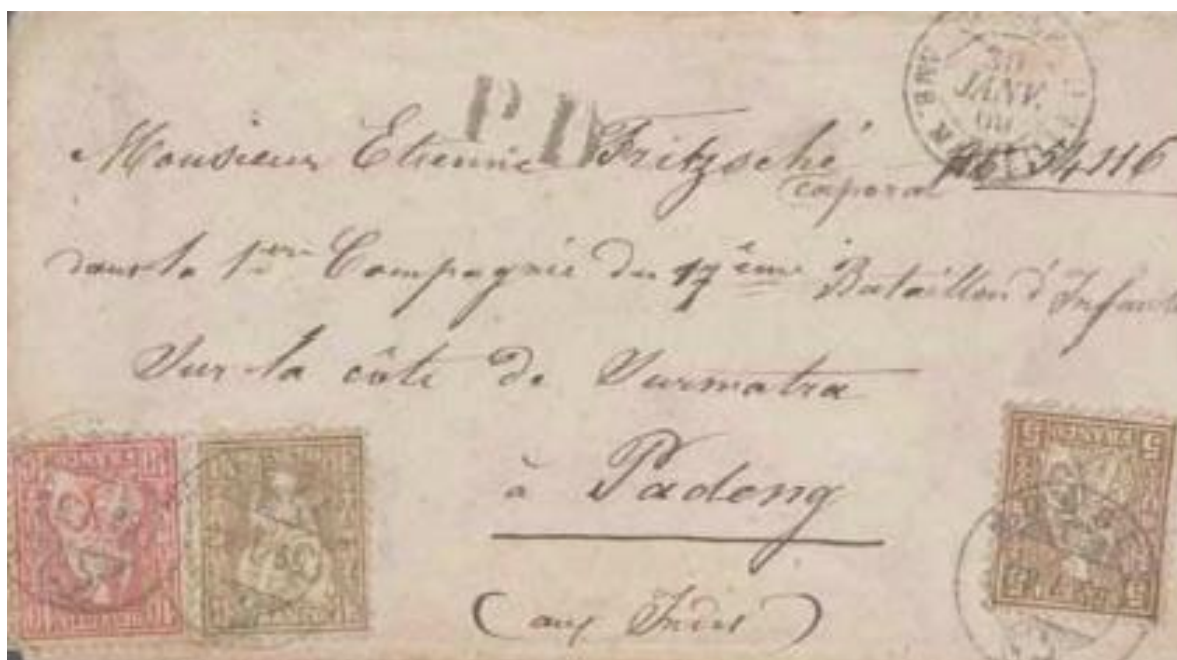 PD
30
JANV.
Monsieur Etienne Fritzsché № 54116
caporal
dans la 1ère Compagnie du 17ème Bataillon d'Infant
Sur la côte de Surmatra
à Padong
(aux Indes)